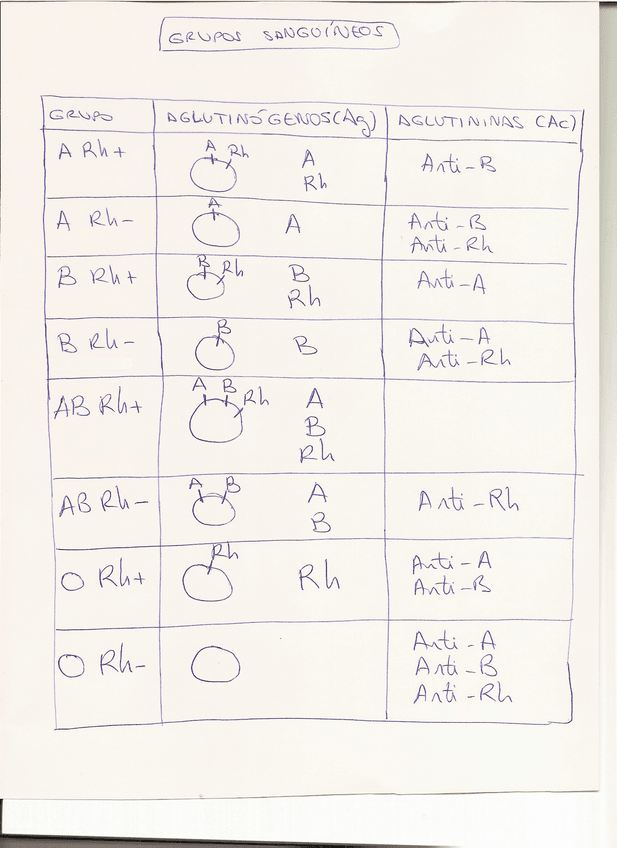 GRUPOS SANGUÍNEOS
GRUPO AGLUTINÓGENOS (Ag) AGLUTININAS (Ac)
A Rh+
A Rh
A
Rh
Anti-B
A Rh-
A
A
Anti-B
Anti-Rh
B Rh+
B Rh
B
Rh
Anti-A
B Rh-
B
B
Anti-A
Anti-Rh
AB Rh+
A B Rh
A
B
Rh
AB Rh-
A B
A
B
Anti-Rh
O Rh+
Rh
Rh
Anti-A
Anti-B
O Rh-
Anti-A
Anti-B
Anti-Rh